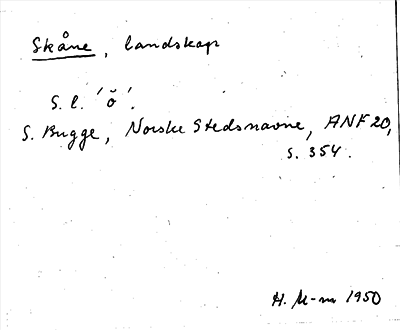 Skåne, landskap
S. l. 'ö'.
S. Bugge, Norske Stedsnavne, ANF 20,
s. 354.
H. M-m 1950